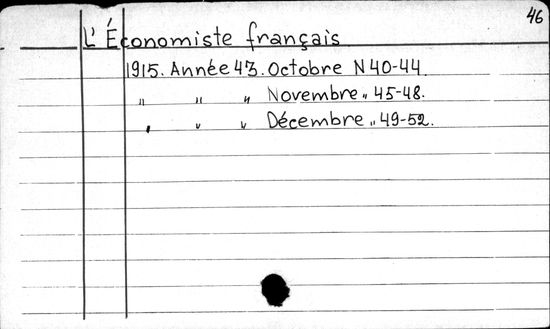 46
L'Économiste français
1915. Année 43. Octobre N 40-44.
" " " Novembre " 45-48.
" " " Décembre " 49-52.